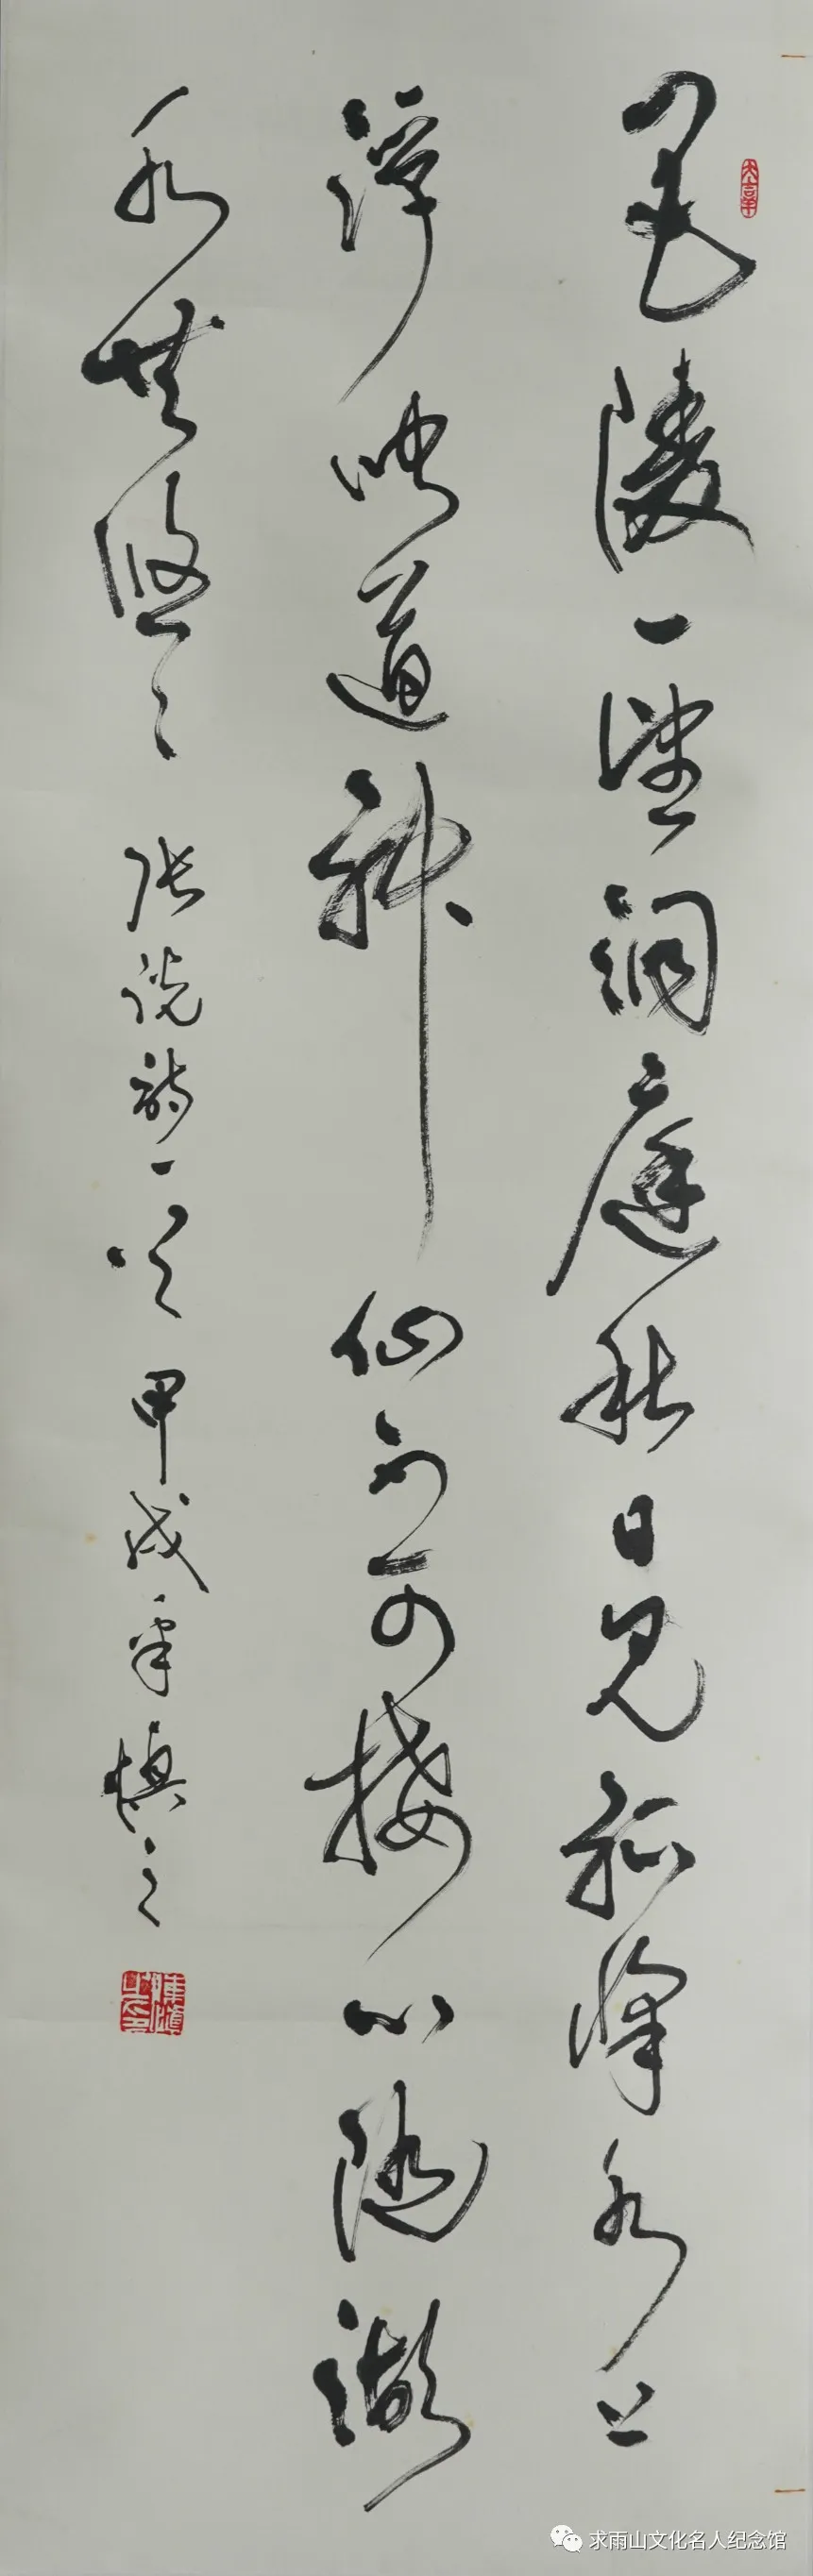 巴陵一望洞庭秋日见孤峰水上
浮此道神仙不可接心随湖
水共悠々
张说诗一首 甲戌年 慎之
求雨山文化名人纪念馆